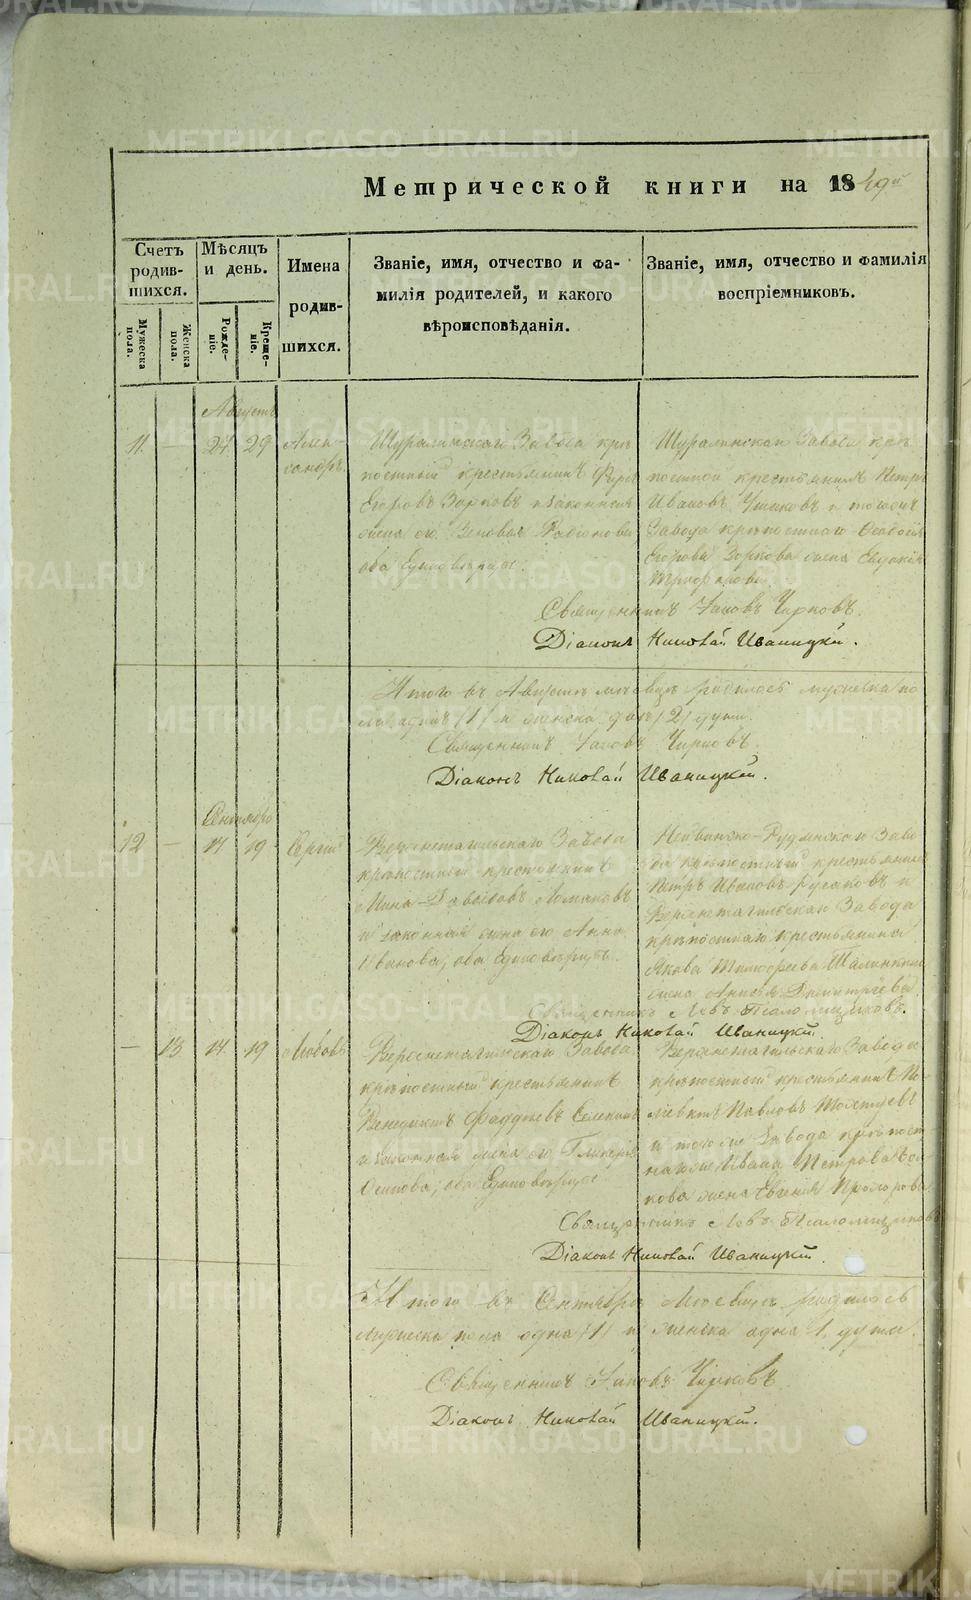 Метрической книги на 1849й
Счетъ родившихся.
Мѣсяцъ и день.
Имена родившихся.
Званіе, имя, отчество и фамилія родителей, и какого вѣроисповѣданія.
Званіе, имя, отчество и фамилія воспріемниковъ.
Мужеска пола.
Женска пола.
Рожденіе.
Крещеніе.
Августъ
11. — 27 29 Александръ.
Шуралинскаго Завода крѣпостный крестьянинъ
Егоровъ Зорковъ и законная
жена его Зеновья Родіонова
оба Единовѣрцы.
Шуралинскаго Завода крѣпостной крестьянинъ Петръ
Ивановъ Ушаковъ и тогоже
Завода крѣпостнаго
Егорова Зоркова жена Евдокія
Трифонова
Священникъ Іаковъ Чирковъ.
Діаконъ Николай Иваницкій.
Итого въ Августѣ мѣсяцѣ родилось мужеска пола одинъ /1/ и женска двѣ /2/ души.
Священникъ Іаковъ Чирковъ.
Діаконъ Николай Иваницкій.
Сентябрь
12 — 17 19 Сергій
Верхнетагильскаго Завода
крѣпостный крестьянинъ
Мина Давыдовъ
и законная жена его Анна
Иванова, оба Единовѣрцы.
Нейвинско-Рудянскаго Завода крѣпостный крестьянинъ
Петръ Ивановъ Русаковъ и
Верхнетагильскаго Завода
крѣпостнаго крестьянина
Якова Тимофеева
жена Анисья Димитріева
Священникъ Левъ Псаломщиковъ.
Діаконъ Николай Иваницкій.
— 13 17 19 Любовь
Верхнетагильскаго Завода
крѣпостный крестьянинъ
Венедиктъ Фаддѣевъ
и законная жена его Гликерія
Осипова, оба Единовѣрцы
Верхнетагильскаго Завода
крѣпостный крестьянинъ
Павловъ
и тогоже Завода крѣпостнаго Ивана Петрова
жена Евгенія Прохорова
Священникъ Левъ Псаломщиковъ
Діаконъ Николай Иваницкій.
Итого въ Сентябрѣ Мѣсяцѣ родилось
мужеска пола одна /1/ и женска одна 1. душа.
Священникъ Іаковъ Чирковъ
Діаконъ Николай Иваницкій.
METRIKI.GASO-URAL.RU